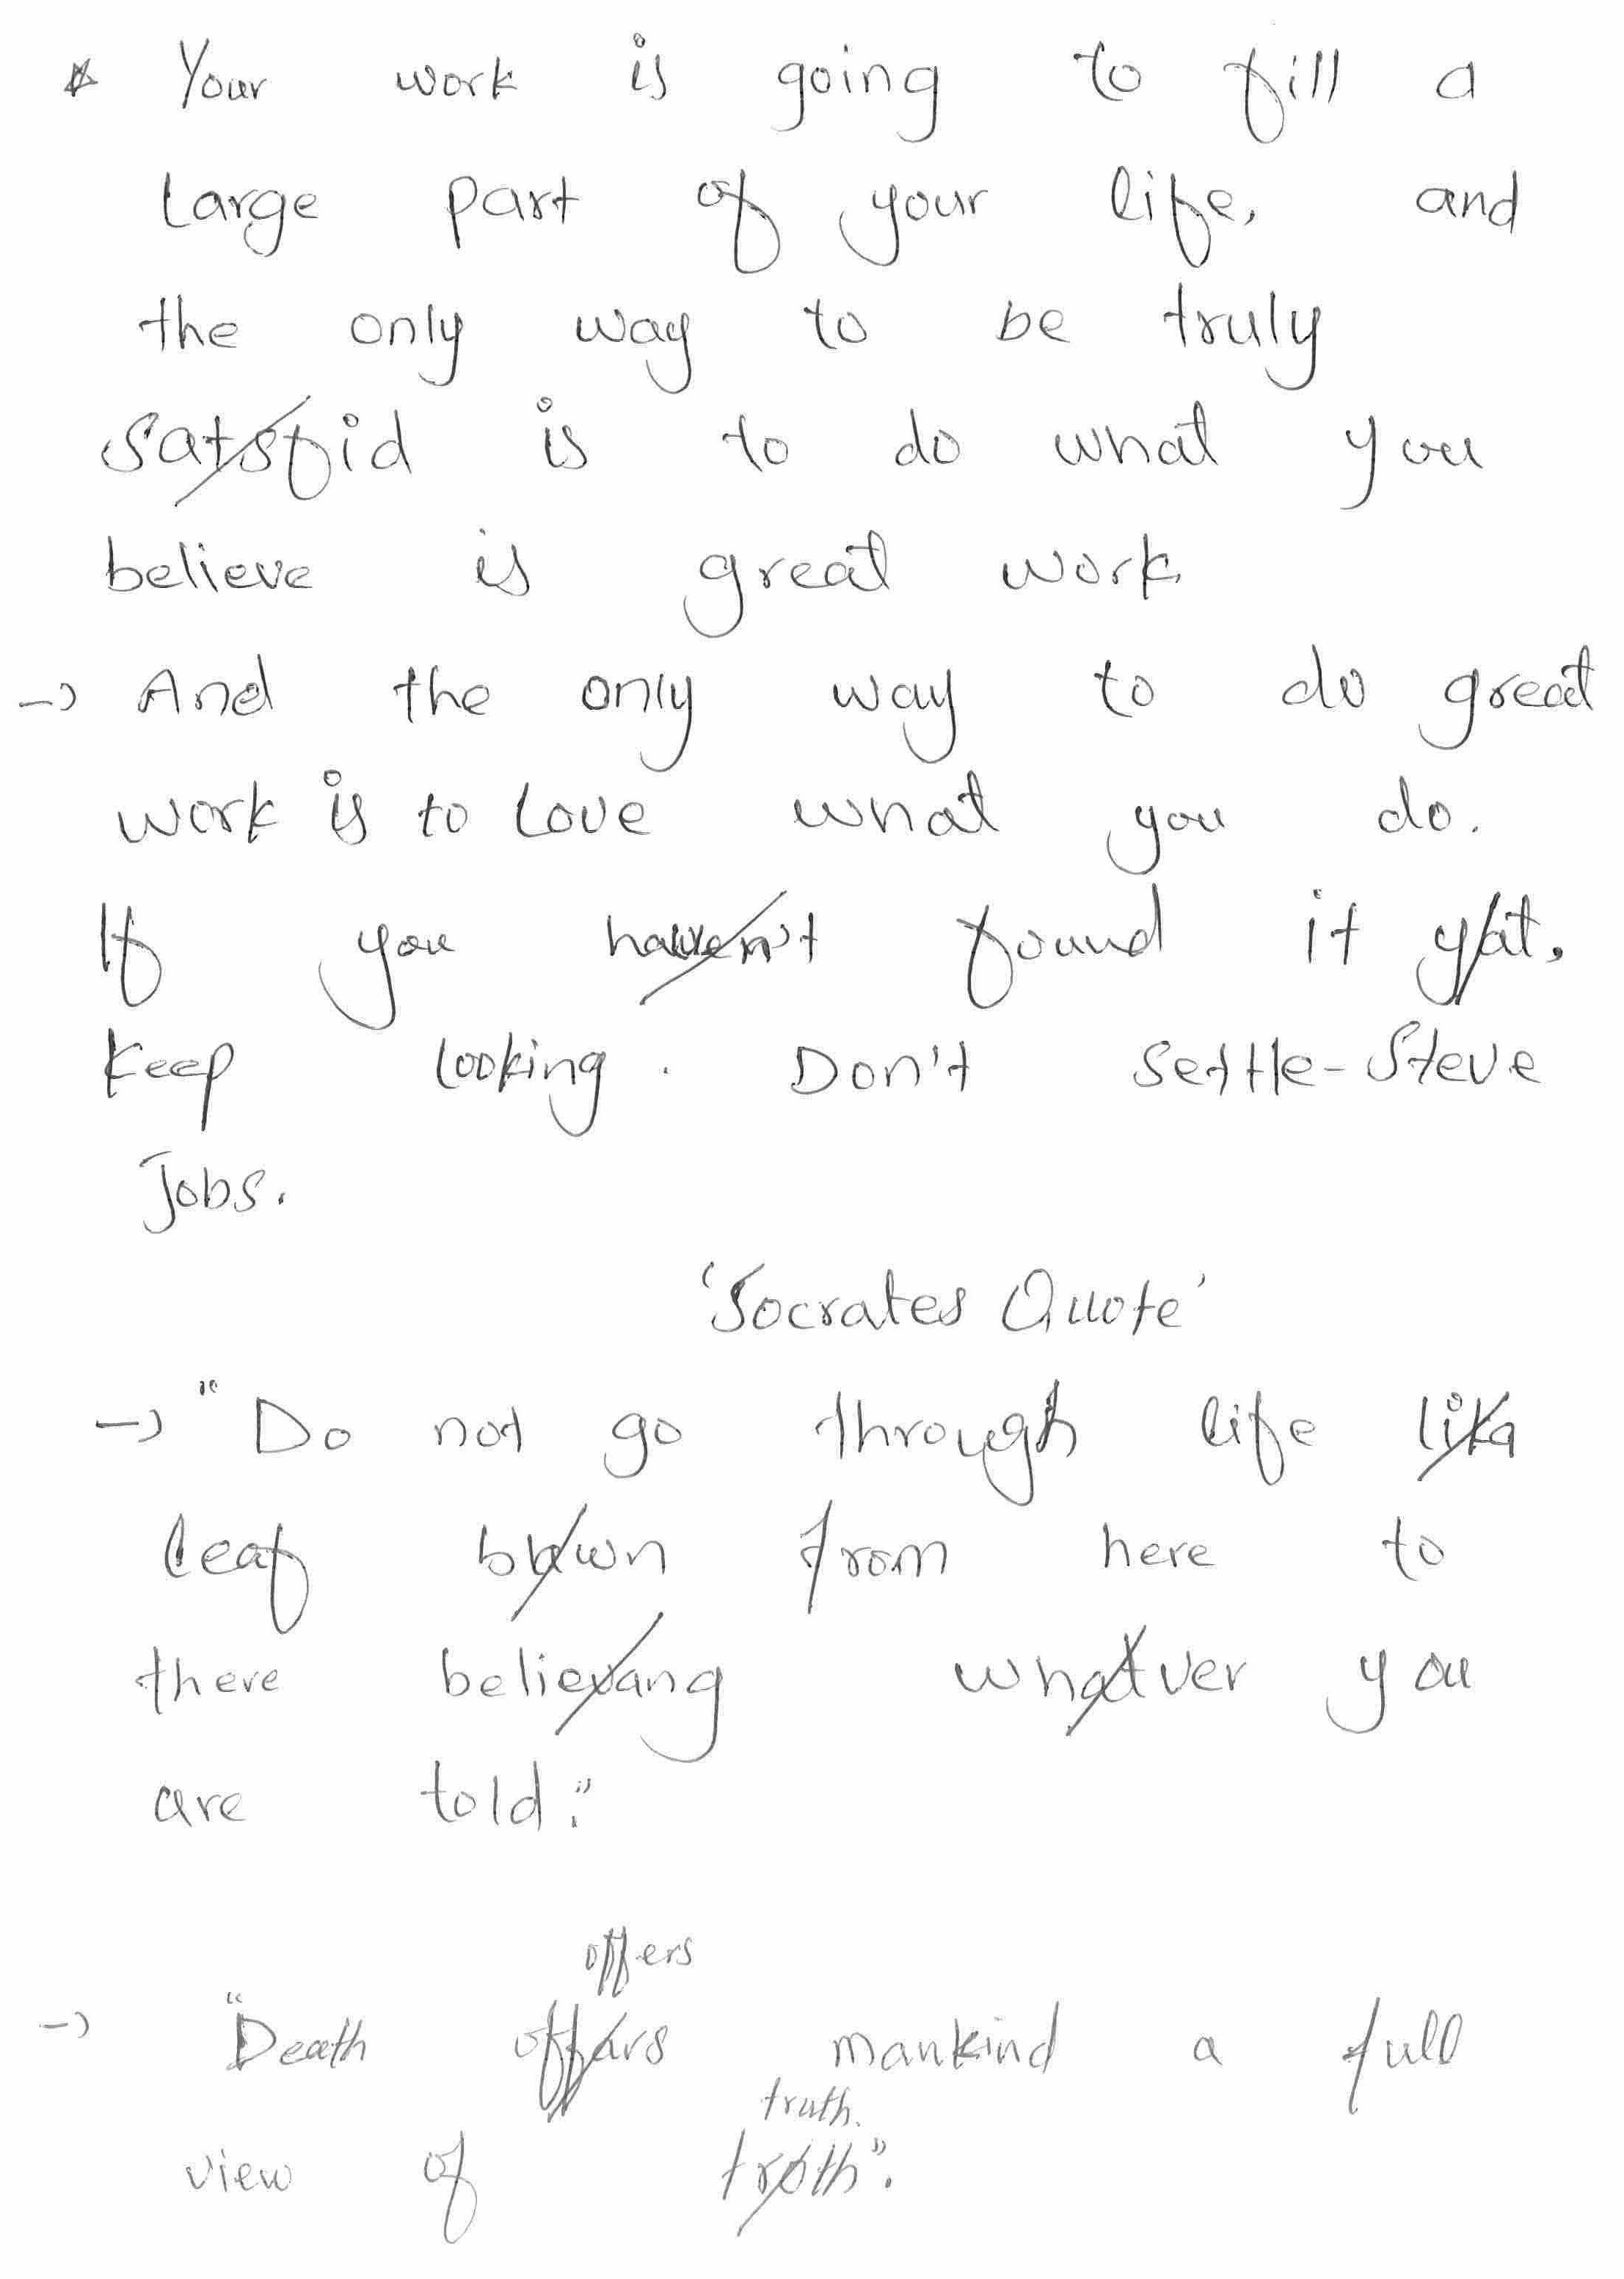 * Your work is going to fill a
large part of your life, and
the only way to be truly
satsfid is to do what you
believe is great work.
→ And the only way to do great
work is to love what you do.
If you haven't found it yat.
Keep looking. Don't settle-Steve
Jobs.
'Socrates Quote'
→ "Do not go through life lika
leaf from here to
there believang whatver you
are told."
offers
→ "Death offars mankind a full
truth.
view of troth".